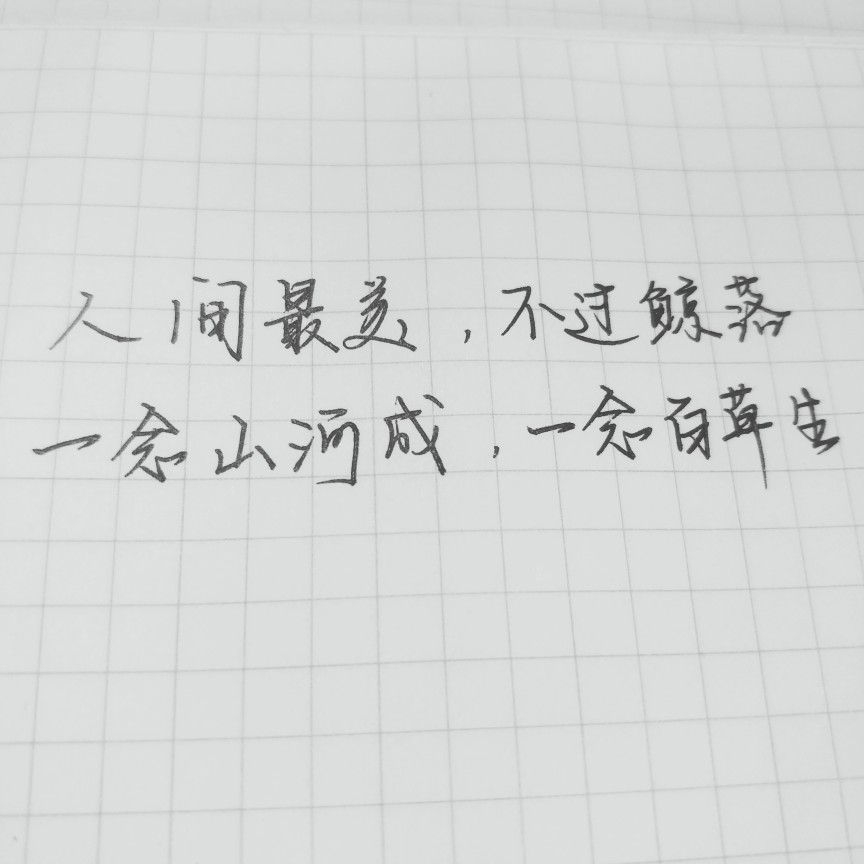 人间最美，不过鲸落
一念山河成，一念百草生